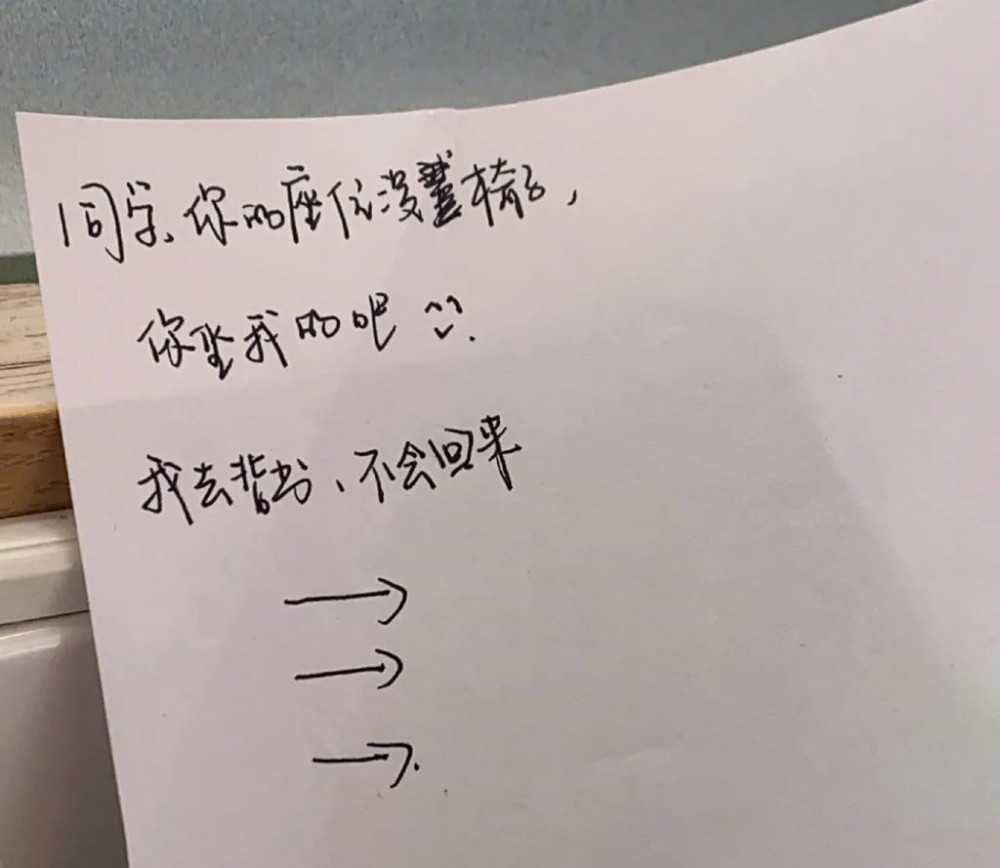 同学、你的座位没椅子，
你坐我的吧 ^^
我去背书、不会回来
→
→
→.